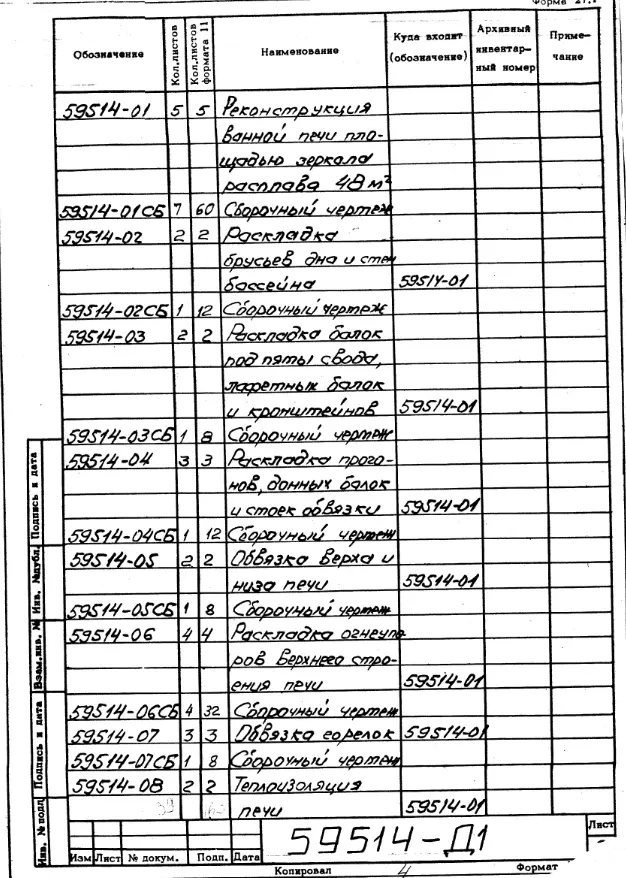 Форма 27.
Обозначение Кол.листов Кол.листов формата 11 Наименование Куда входит (обозначение) Архивный инвентар-ный номер Приме-чание
59514-01 5 5 Реконструкция
ванной печи пло-
щадью зеркала
расплава 48 м²
59514-01СБ 7 60 Сборочный чертеж
59514-02 2 2 Раскладка
брусьев дна и стен
бассейна 59514-01
59514-02СБ 1 12 Сборочный чертеж
59514-03 2 2 Раскладка балок
под пяты свода,
лафетных балок
и кронштейнов 59514-01
59514-03СБ 1 8 Сборочный чертеж
59514-04 3 3 Раскладка прого-
нов, донных балок
и стоек обвязки 59514-01
59514-04СБ 1 12 Сборочный чертеж
59514-05 2 2 Обвязка верха и
низа печи 59514-01
59514-05СБ 1 8 Сборочный чертеж
59514-06 4 4 Раскладка огнеупо-
ров верхнего стро-
ения печи 59514-01
59514-06СБ 4 32 Сборочный чертеж
59514-07 3 3 Обвязка горелок 59514-01
59514-07СБ 1 8 Сборочный чертеж
59514-08 2 2 Теплоизоляция
печи 59514-01
Подпись и дата
Инв. №дубл.
Взам.инв. №
Подпись и дата
Инв. № подл
59514-Д1
Лист
Изм Лист № докум. Подп. Дата
Копировал 4 Формат